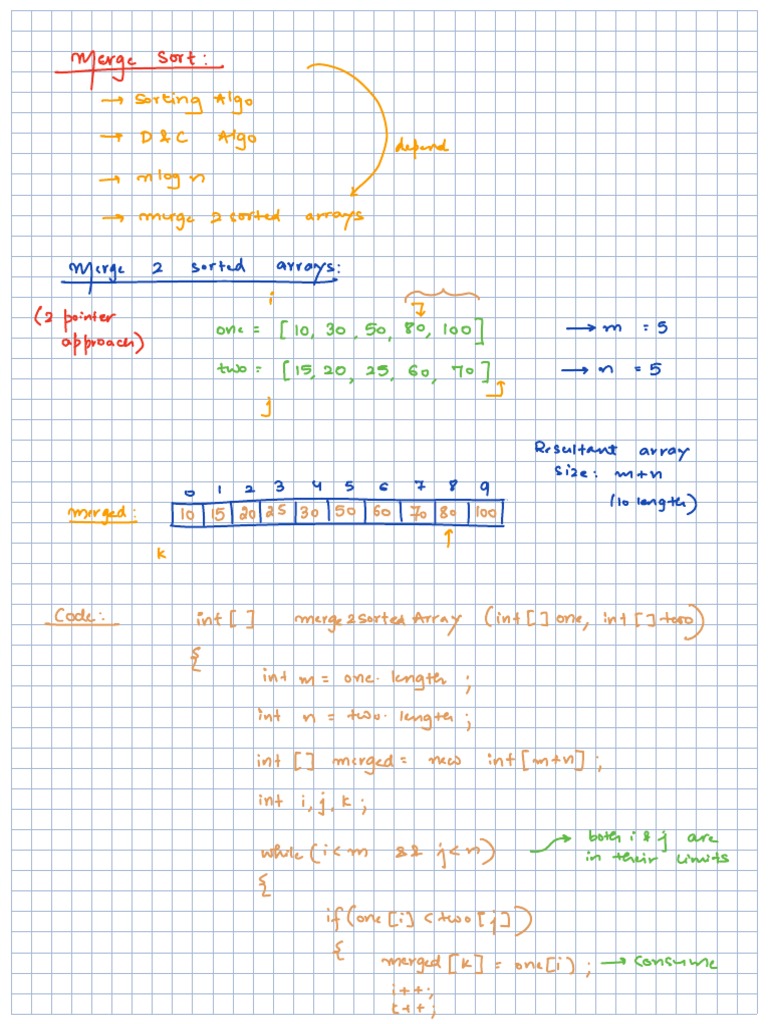 Merge Sort:
→ Sorting Algo
→ D & C Algo
→ n log n
→ merge 2 sorted arrays
depend
Merge 2 sorted arrays:
(2 pointer
approach)
i
one = [10, 30, 50, 80, 100] → m = 5
two = [15, 20, 25, 60, 70] → n = 5
j
Resultant array
size: m+n
(10 length)
0 1 2 3 4 5 6 7 8 9
merged: 10 15 20 25 30 50 60 70 80 100
k
Code: int [] merge2SortedArray (int[] one, int[] two)
{
int m = one.length ;
int n = two.length ;
int [] merged = new int[m+n] ;
int i, j, k ;
while (i<m && j<n) → both i & j are
in their limits
{
if (one[i] < two[j])
{
merged[k] = one[i) ; → consume
i++;
k++;